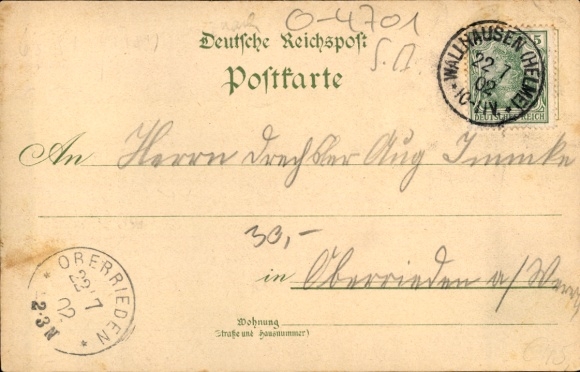 O-4701
Deutsche Reichspost
Postkarte
WALLHAUSEN (HELME)
22 7
02
10-11V.
5
DEUTSCHES REICH
An Herrn Drechsler Aug Immke
30,-
in Oberrieden a/ Werra
OBERRIEDEN
22 7
02
2-3N
Wohnung
(Straße und Hausnummer)